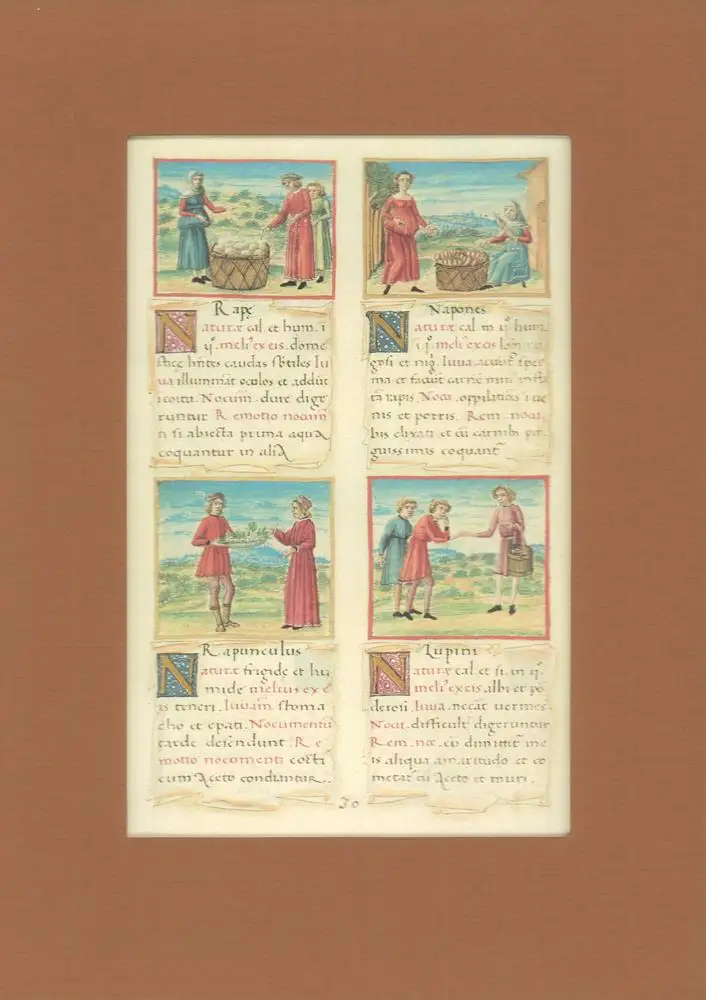 Rapę
Naturæ cal. et hum. i
ijº. meliº ex eis. dome
stice hñtes caudas sbtiles Iu
ua illuminãt ocolos et addũt
i coitu. Nocum. dure dige
runtur Remotio nocum̃
ti si abiecta prima aqua
coquantur in alia
Napones
Naturæ cal. in ijº hum
i iº. meliº ex eos
gosi et Iuua.
ma et faciũt carnẽ
ta rapis. Nocũ. oppilatiões i ue
nis et porris. Rem. nocu.
bis elixati et cũ carnibꝰ pi
guissimis coquant
Rapunculus
Naturæ frigide et hu
mide melius ex e
is teneri. Iuuam̃ stoma
cho et epati. Nocumentũ
tarde descendunt. Re
motio nocomenti cocti
cum Aceto condiantur..
Lupini
Naturæ cal. et si. in ijº.
meliº. ex eis. albi et po
derosi. Iuua. necãt uermes.
Nocũ. difficult̃ digeruntur
Rem. noc. cũ dimittit̃ in e
is aliqua amaritudo et co
medãt cũ Aceto et muri.
30